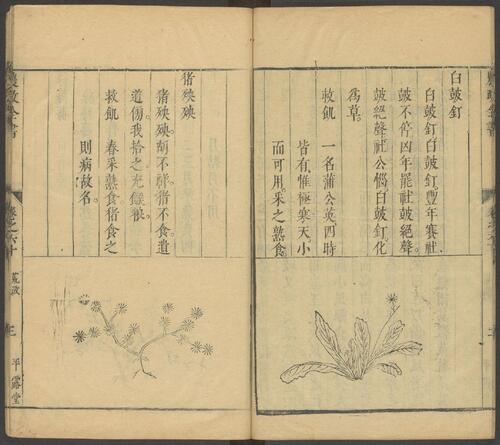 白鼓釘
白鼓釘白鼓釘。豐年賽社
鼓不停凶年罷社鼓絕聲。
鼓絕聲社公惱白鼓釘化
爲草。
救飢 一名蒲公英四時
皆有。惟極寒天。小
而可用。采之熟食。
猪殃殃
猪殃殃。胡不祥。猪不食遺
道傍。我拾之。充餱粮。
救飢 春采熟食。猪食之
則病。故名。
農政全書
卷之六十
荒政
平露堂